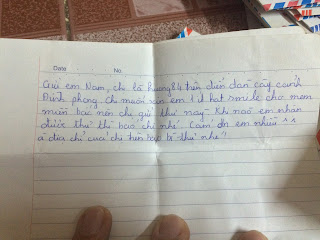 Date No.
Gửi em Nam, chị là huong84 trên diễn đàn cây cảnh
Định phong. chị muốn xin em 1 ít hạt smile cho mem
miền bắc nên chị gửi thư này. Khi nào em nhận
được thư thì báo chị nhé. Cám ơn em nhiều ^^
à địa chỉ của chị trên bao bì thư nhé!